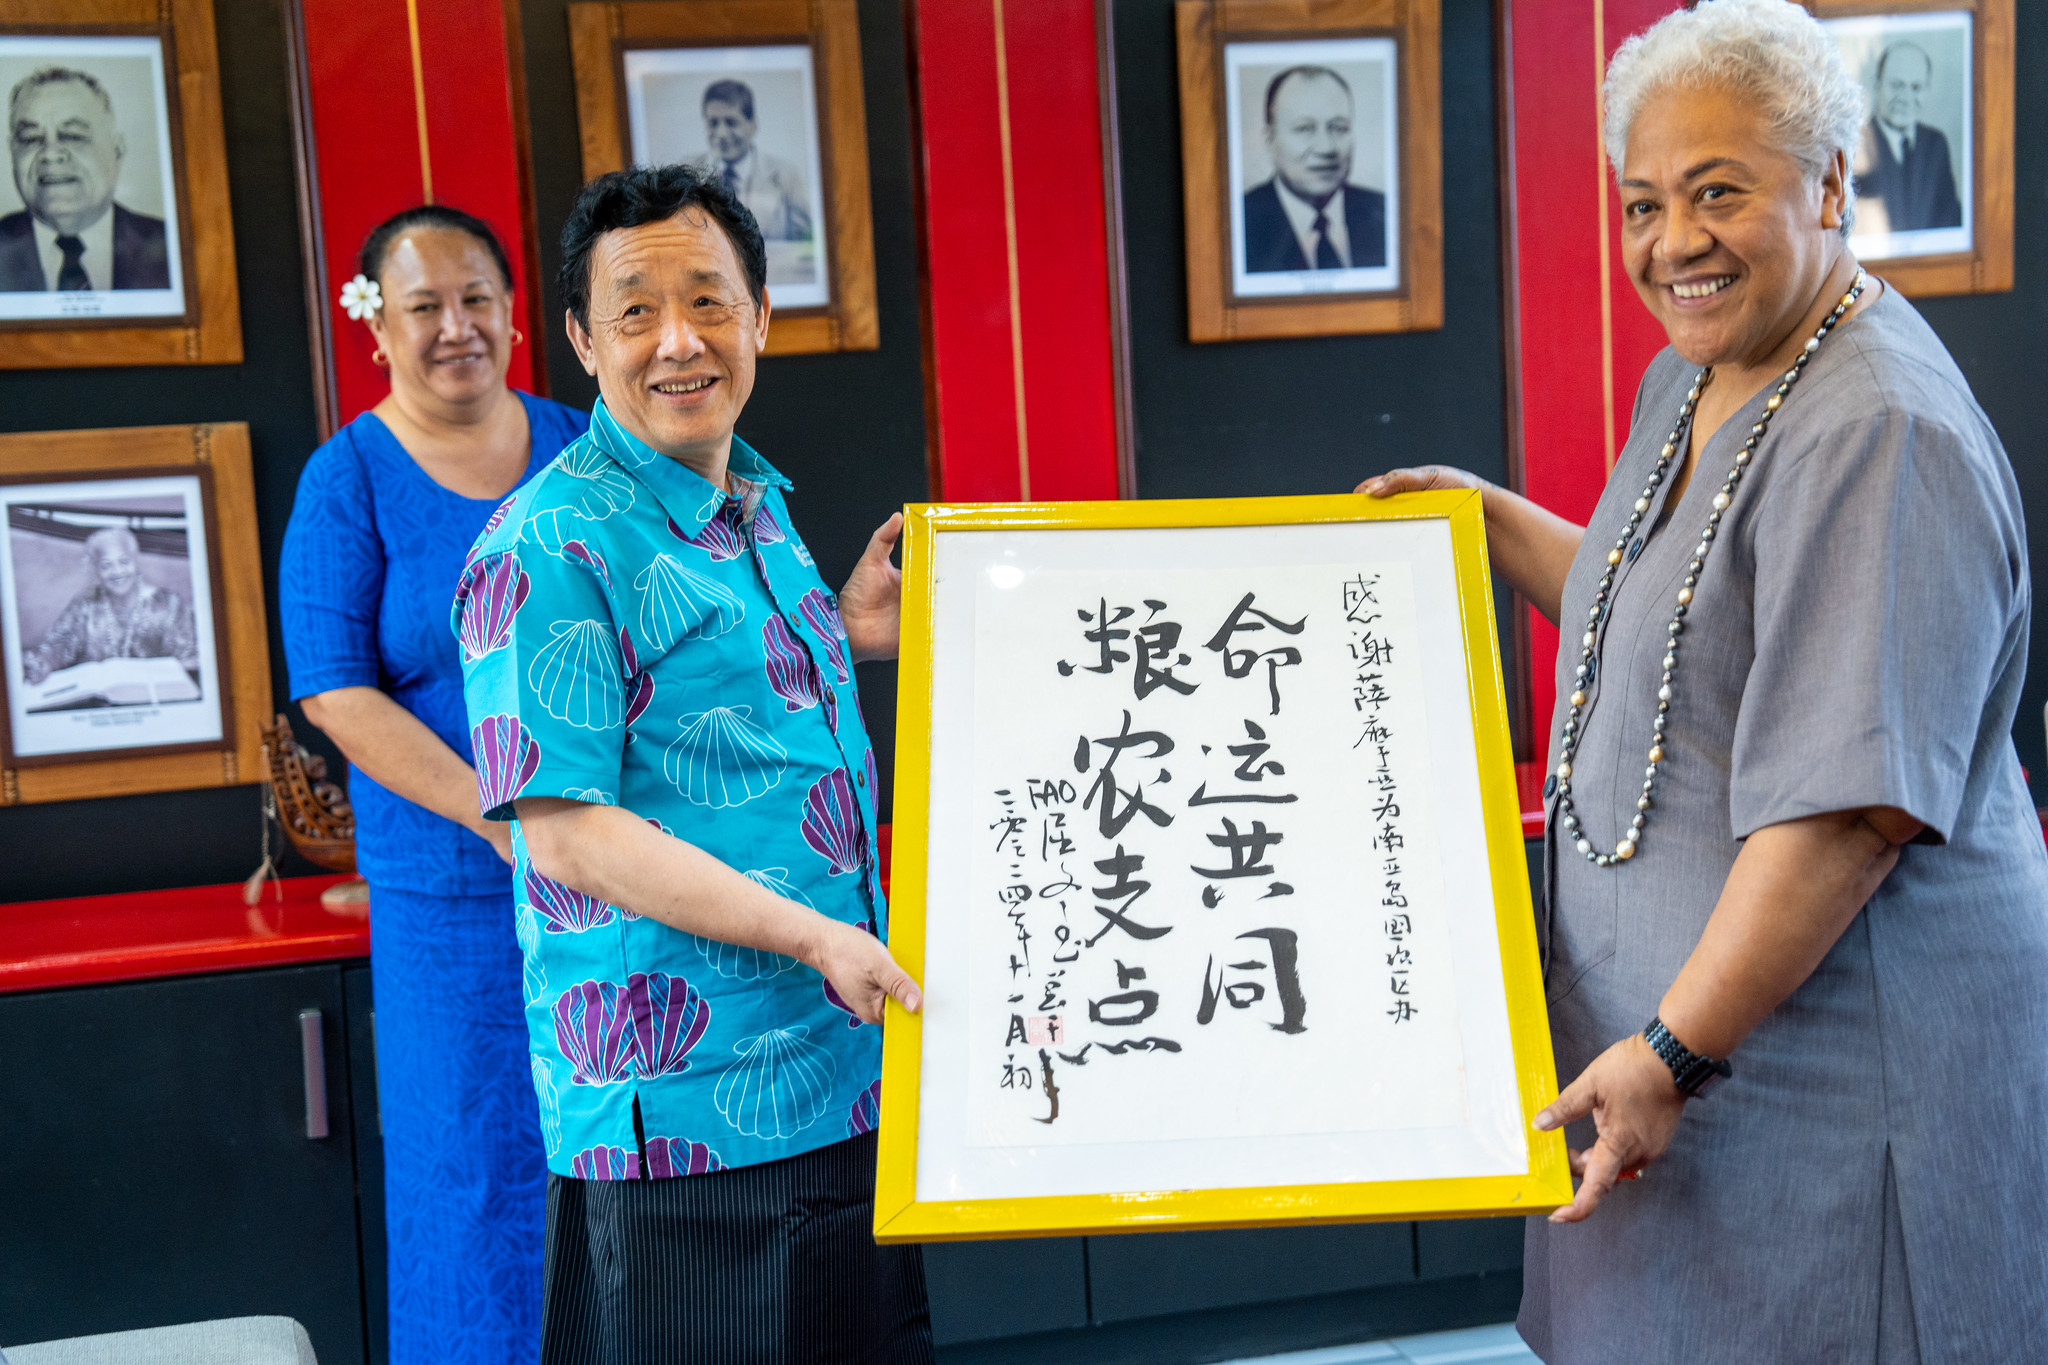 感谢萨摩亚为南亚岛国次区办
命运共同
粮农支点
FAO 屈冬玉
二零二四年十一月初